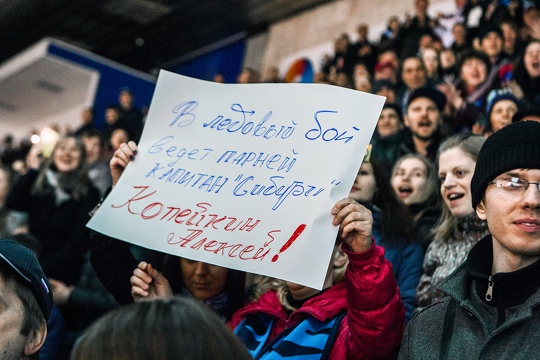 В ледовый бой
ведет парней
капитан "Сибири"
Копейкин
Алексей!